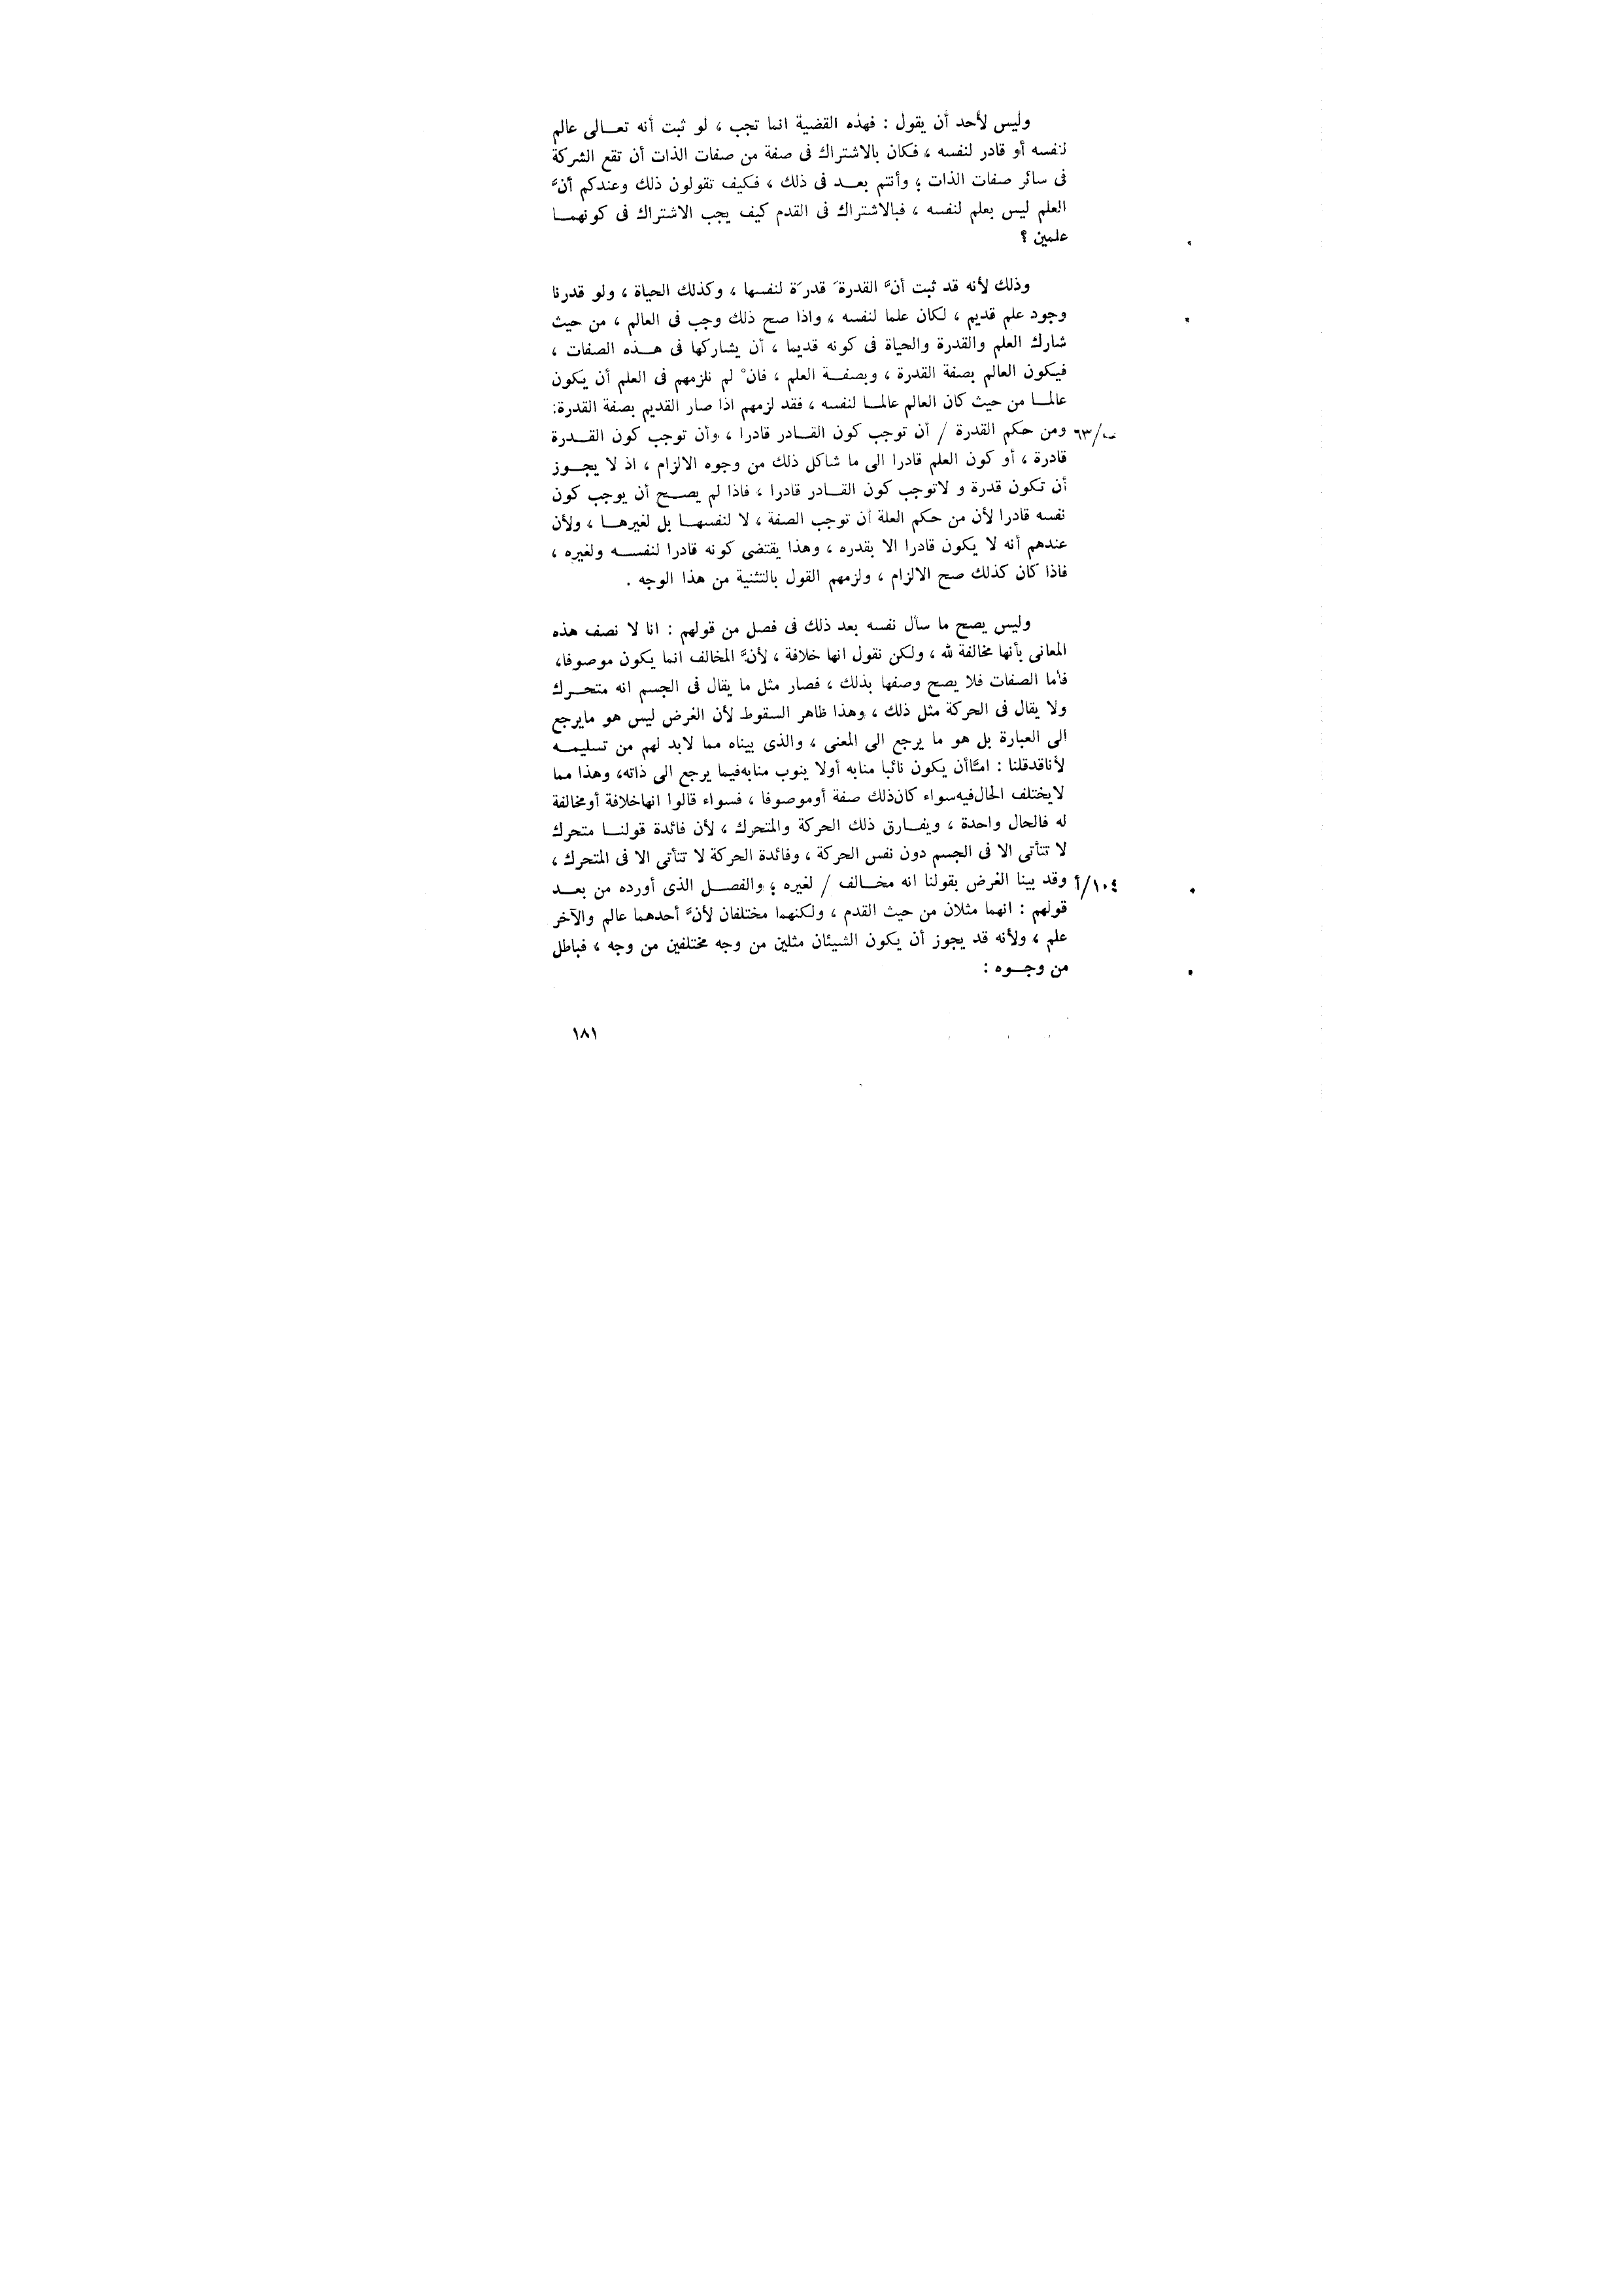 وليس لأحد أن يقول : فهذه القضية انما تجب ، لو ثبت أنه تعــالى عالم
لنفسه أو قادر لنفسه ، فكان بالاشتراك فى صفة من صفات الذات أن تقع الشركة
فى سائر صفات الذات ؛ وأنتم بعــد فى ذلك ، فكيف تقولون ذلك وعندكم أنَّ
العلم ليس بعلم لنفسه ، فبالاشتراك فى القدم كيف يجب الاشتراك فى كونهمــا
علمين ؟
وذلك لأنه قد ثبت أنَّ القدرةَ قدرَة لنفسها ، وكذلك الحياة ، ولو قدرنا
وجود علم قديم ، لكان علما لنفسه ، واذا صح ذلك وجب فى العالم ، من حيث
شارك العلم والقدرة والحياة فى كونه قديما ، أن يشاركها فى هــذه الصفات ،
فيكون العالم بصفة القدرة ، وبصفــة العلم ، فانْ لم نلزمهم فى العلم أن يكون
عالمــا من حيث كان العالم عالمــا لنفسه ، فقد لزمهم اذا صار القديم بصفة القدرة:
٦٣/ب ومن حكم القدرة / أن توجب كون القــادر قادرا ، وأن توجب كون القــدرة
قادرة ، أو كون العلم قادرا الى ما شاكل ذلك من وجوه الالزام ، اذ لا يجــوز
أن تكون قدرة و لاتوجب كون القــادر قادرا ، فاذا لم يصــح أن يوجب كون
نفسه قادرا لأن من حكم العلة أن توجب الصفة ، لا لنفسهــا بل لغيرهــا ، ولأن
عندهم أنه لا يكون قادرا الا بقدره ، وهذا يقتضى كونه قادرا لنفســه ولغيره ،
فاذا كان كذلك صح الالزام ، ولزمهم القول بالتثنية من هذا الوجه .
وليس يصح ما سأل نفسه بعد ذلك فى فصل من قولهم : انا لا نصف هذه
المعانى بأنها مخالفة لله ، ولكن نقول انها خلافة ، لأنَّ المخالف انما يكون موصوفا،
فأما الصفات فلا يصح وصفها بذلك ، فصار مثل ما يقال فى الجسم انه متحــرك
ولا يقال فى الحركة مثل ذلك ، وهذا ظاهر السقوط لأن الغرض ليس هو مايرجع
الى العبارة بل هو ما يرجع الى المعنى ، والذى بيناه مما لابد لهم من تسليمــه
لأناقدقلنا : امَّاأن يكون نائبا منابه أولا ينوب منابه‌فيما يرجع الى ذاته، وهذا مما
لايختلف الحال‌فيه‌سواء كان‌ذلك صفة أوموصوفا ، فسواء قالوا انهاخلافة أومخالفة
له فالحال واحدة ، ويفــارق ذلك الحركة والمتحرك ، لأن فائدة قولنــا متحرك
لا تتأتى الا فى الجسم دون نفس الحركة ، وفائدة الحركة لا تتأتى الا فى المتحرك ،
١٠٤/أ وقد بينا الغرض بقولنا انه مخــالف / لغيره ؛ والفصــل الذى أورده من بعــد
قولهم : انهما مثلان من حيث القدم ، ولكنهما مختلفان لأنَّ أحدهما عالم والآخر
علم ، ولأنه قد يجوز أن يكون الشيئان مثلين من وجه مختلفين من وجه ، فباطل
من وجــوه :
١٨١